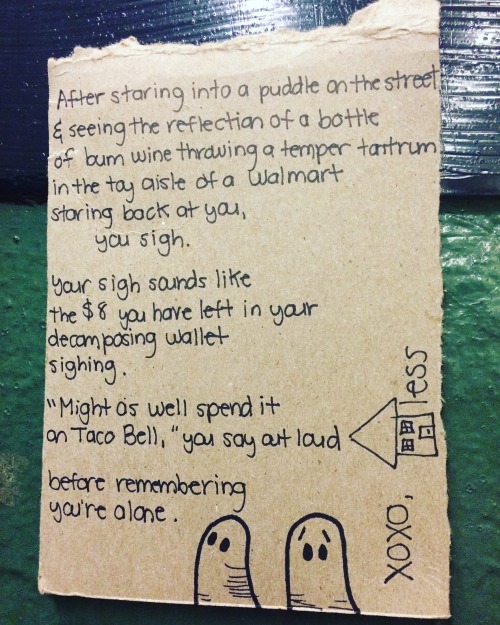 After staring into a puddle on the street
& seeing the reflection of a bottle
of bum wine throwing a temper tantrum
in the toy aisle of a Walmart
staring back at you,
you sigh.
Your sigh sounds like
the $8 you have left in your
decomposing wallet
sighing.
"Might as well spend it
on Taco Bell," you say out loud
before remembering
you're alone.
XOXO,
less